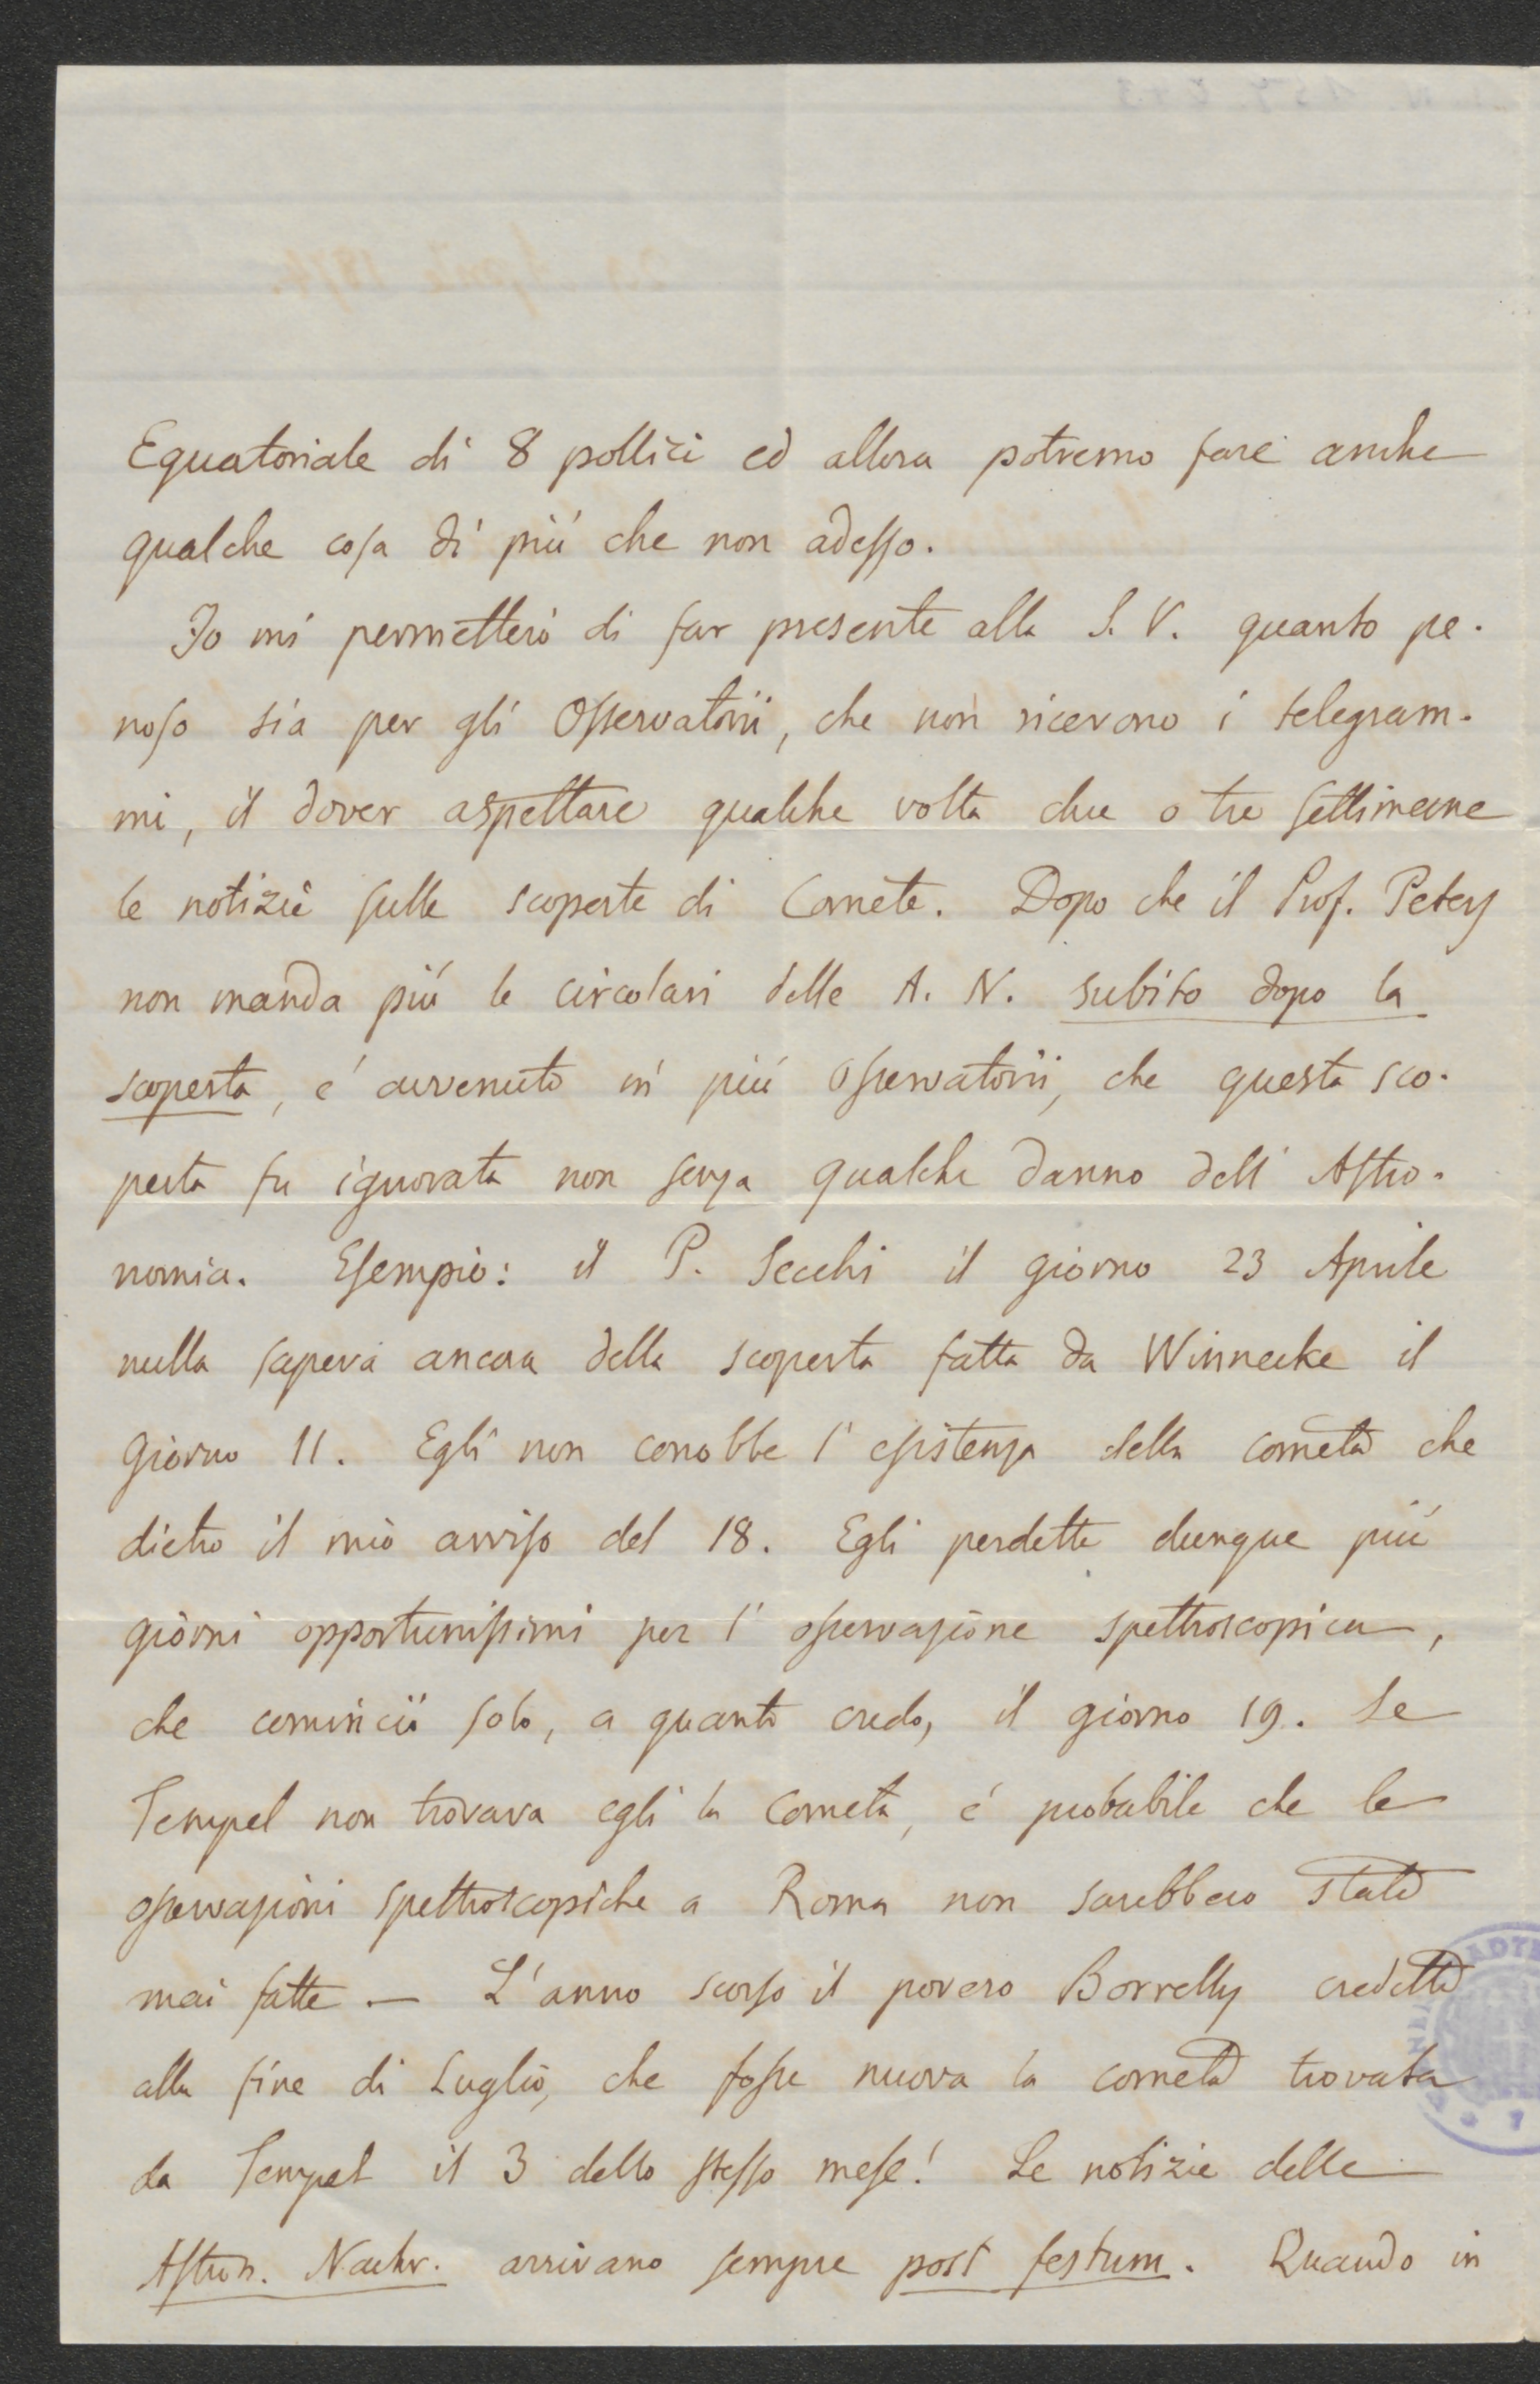 Equatoriale di 8 pollici ed allora potremo fare anche
qualche cosa di più che non adesso.
Io mi permetterò di far presente alla S. V. quanto pe-
noso sia per gli Osservatorii, che non ricevono i telegram-
mi, il dover aspettare qualche volta due o tre settimane
le notizie sulle scoperte di Comete. Dopo che il Prof. Peters
non manda più le circolari delle A. N. subito dopo la
scoperta, é avvenuto in più Osservatorii, che questa sco-
perta fu ignorata non senza qualche danno dell' Astro-
nomia. Esempio: il P. Secchi il giorno 23 Aprile
nulla sapeva ancora della scoperta fatta da Winnecke il
giorno 11. Egli non conobbe l' esistenza della cometa che
dietro il mio avviso del 18. Egli perdette dunque più
giorni opportunissimi per l' osservazione spettroscopica,
che cominciò solo, a quanto credo, il giorno 19. Se
Tempel non trovava egli la Cometa, é probabile che le
osservazioni spettroscopiche a Roma non sarebbero state
mai fatte. — L' anno scorso il povero Borrelly credette
alla fine di Luglio, che fosse nuova la cometa trovata
da Tempel il 3 dello stesso mese! Le notizie delle
Astron. Nachr. arrivano sempre post festum. Quando in